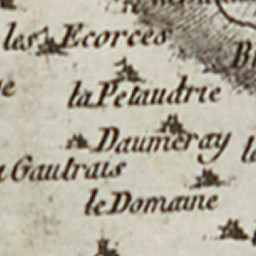 les Ecorces
la Petaudrie
Daumeray
Gautrais
le Domaine